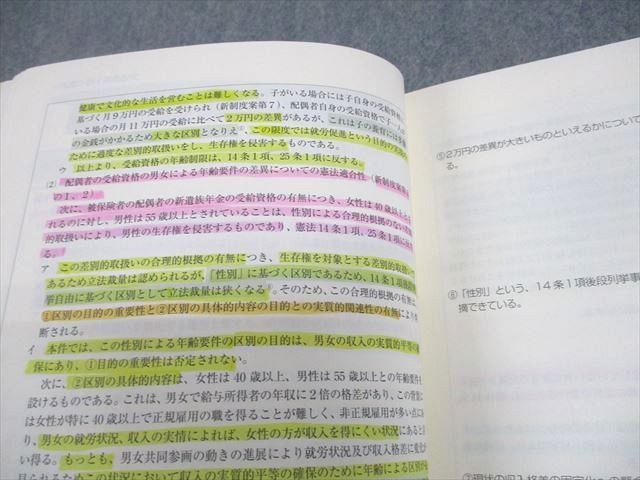 健康で文化的な生活を営むことは難しくなる。子がいる場合には子自身の受給資格
基づく月9万円の受給を受けられ（新制度案第7）、配偶者自身の受給資格で子一人
いる場合の月11万円の受給に比べて2万円の差異があるが、これは子の養育に
の金銭がかかるため大きな区別となりえ、この限度では就労促進という目的の
ために過度な差別的取扱いをし、生存権を侵害するものである。
ウ 以上より、受給資格の年齢制限は、14条1項、25条1項に反する。
(2) 配偶者の受給資格の男女による年齢要件の差異についての憲法適合性（新制度案第
の1、2）
次に、被保険者の配偶者の新遺族年金の受給資格の有無につき、女性は40歳以上
れるのに対し、男性は55歳以上とされていることは、性別による合理的根拠のない差別
的取扱いにより、男性の生存権を侵害するものであり、憲法14条1項、25条1項に反す
る。
ア この差別的取扱いの合理的根拠の有無につき、生存権を対象とする差別的取扱いで
あるため立法裁量は認められるが、「性別」に基づく区別であるため、14条1項後段
挙自由に基づく区別として立法裁量は狭くなる。そのため、この合理的根拠の有無は、
①区別の目的の重要性と②区別の具体的内容の目的との実質的関連性の有無により
断される。
イ 本件では、この性別による年齢要件の区別の目的は、男女の収入の実質的平等の確
保にあり、①目的の重要性は否定されない。
次に、②区別の具体的内容は、女性は40歳以上、男性は55歳以上との年齢要件を
設けるものである。これは、男女で給与所得者の年収に2倍の格差があり、この背景に
は女性が特に40歳以上で正規雇用の職を得ることが難しく、非正規雇用が多い点に
り、男女の就労状況、収入の実情によれば、女性の方が収入を得にくい状況にあると
い得る。もっとも、男女共同参画の動きの進展により就労状況及び収入格差に変化が
見られるためこの状況において収入の実質的平等の確保のために年齢による区別が
⑤2万円の差異が大きいものといえるかについて
る。
⑥「性別」という、14条1項後段列挙事
摘できている。
⑦現状の収入格差の固定化への